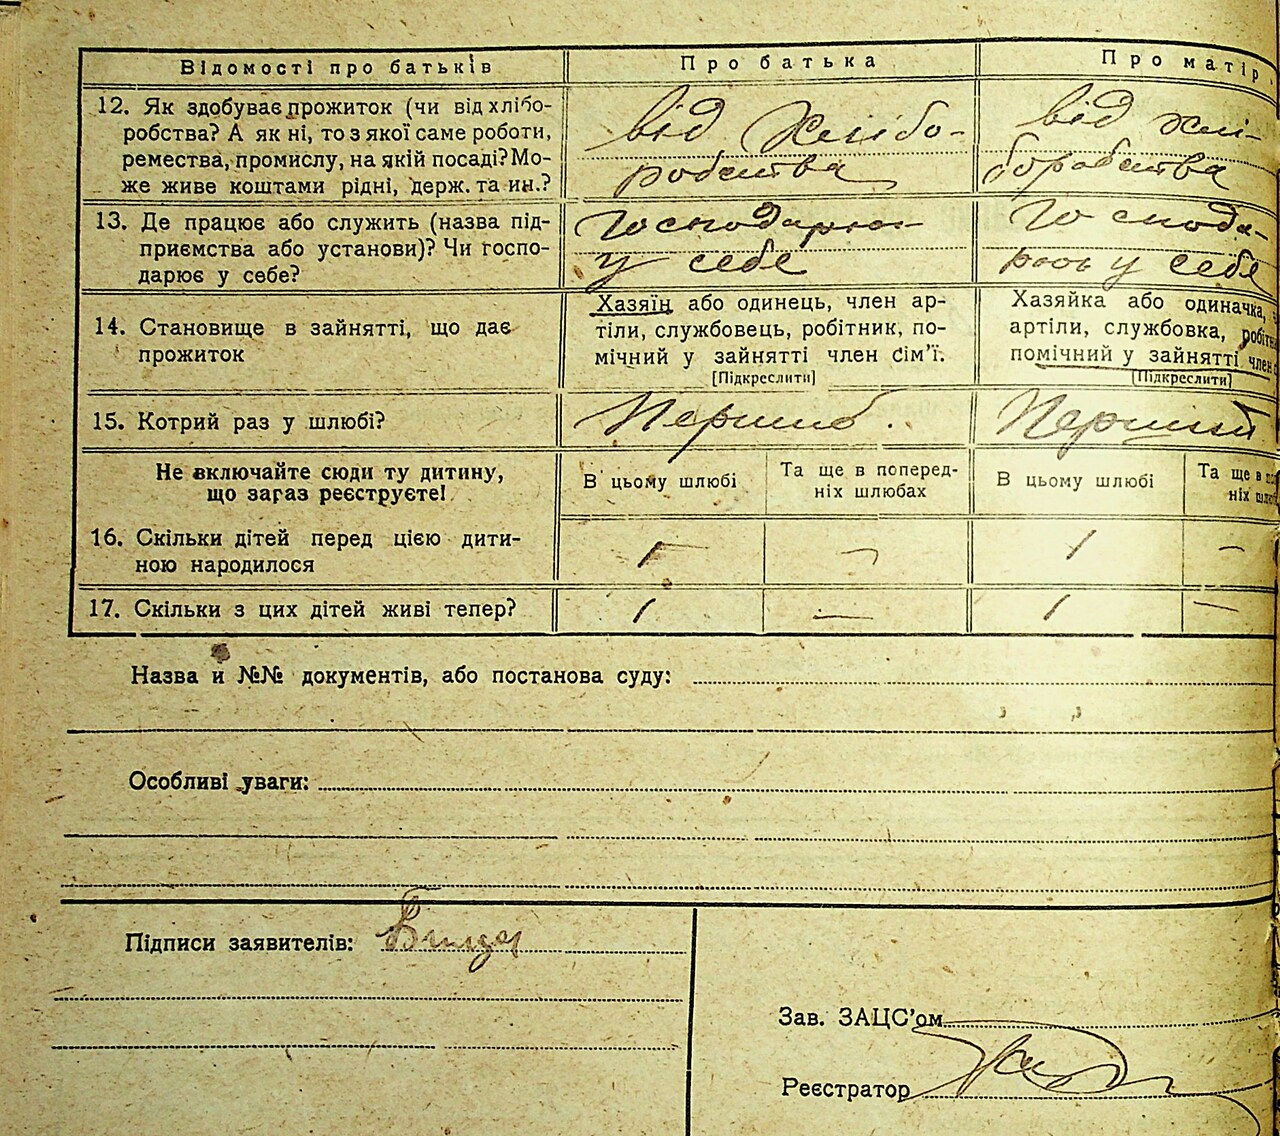 Відомості про батьків
Про батька
Про матір
12. Як здобуває прожиток (чи від хлібо-
робства? А як ні, то з якої саме роботи,
ремества, промислу, на якій посаді? Мо-
же живе коштами рідні, держ. та ин.?
від хлібо-
робства
від хлі-
боробства
13. Де працює або служить (назва під-
приємства або установи)? Чи госпо-
дарює у себе?
Господарює
у себе
Господа-
рює у себе
14. Становище в зайнятті, що дає
прожиток
Хазяїн або одинець, член ар-
тіли, службовець, робітник, по-
мічний у зайнятті член сім’ї.
[Підкреслити]
Хазяйка або одиначка,
артіли, службовка, робітн
помічний у зайнятті член
[Підкреслити]
15. Котрий раз у шлюбі?
Перший
Перший
Не включайте сюди ту дитину,
що зараз реєструєте!
В цьому шлюбі
Та ще в поперед-
ніх шлюбах
В цьому шлюбі
Та ще в поп
ніх шлюб
16. Скільки дітей перед цією дити-
ною народилося
1
—
1
—
17. Скільки з цих дітей живі тепер?
1
—
1
—
Назва и №№ документів, або постанова суду:
Особливі уваги:
Підписи заявителів:
Зав. ЗАЦС’ом
Реєстратор